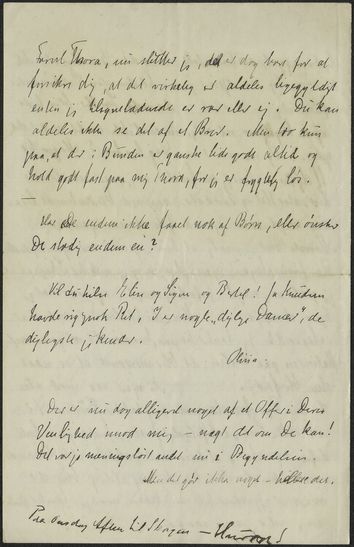 Farvel Thora, nu slutter jeg, det er dog bare for at
forsikre dig, at det virkelig er aldeles ligegyldigt
enten jeg er rar eller ej. Du kan
aldeles ikke se det af et Brev. Men tro kun
paa, at der i Bunden er ganske lidt godt altid og
hold godt fast paa mig Thora, for jeg er frygtelig løs.
—
Har De endnu ikke faaet nok af Børn, eller ønsker
De stadig endnu en?
Vil du hilse Elin og Signe og Bertel! Ja Knudsen
havde rigtignok Ret, I er nogle „dejlige Damer", de
dejligste jeg kender.
Olivia.
Der er nu dog alligevel noget af et Offer i Deres
Venlighed imod mig — nægt det om De kan!
Det var jo meningsløst andet nu i Begyndelsen.
Men det gør ikke noget —
Paa Onsdag Aften til Skagen — Hurra!